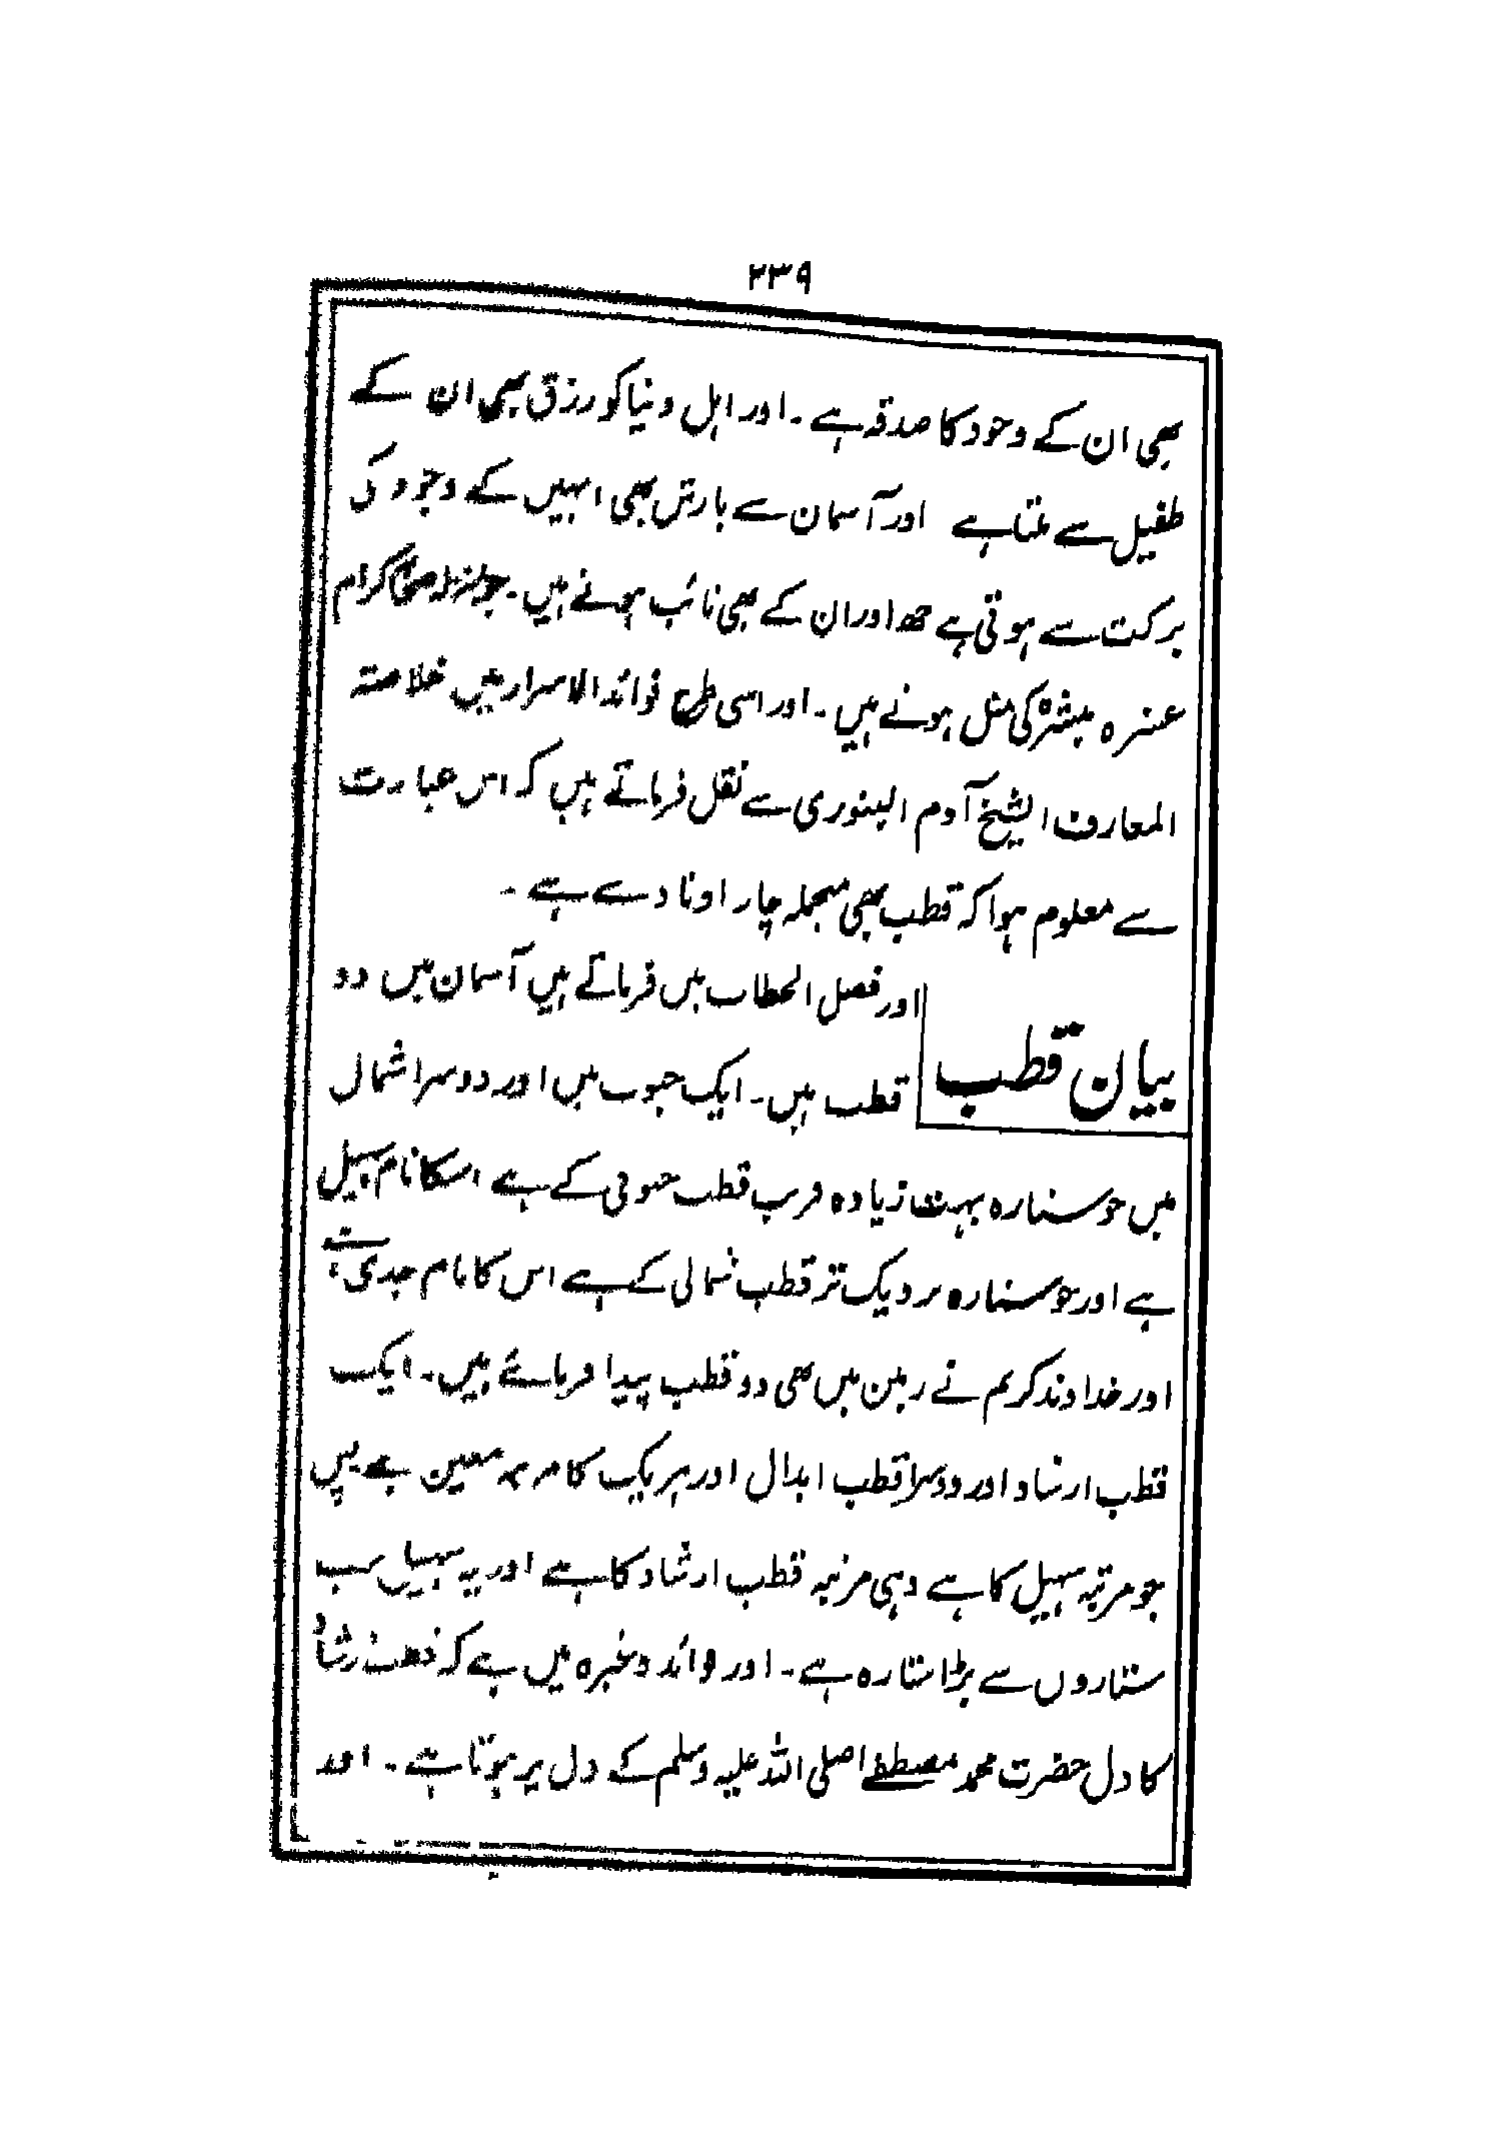 ۲۳۹
بھی ان کے وجود کا صدقہ ہے ۔ اور اہل دنیا کو رزق بھی ان کے
طفیل سے ملتا ہے اور آسمان سے بارش بھی انہیں کے وجود کی
برکت سے ہوتی ہے اور ان کے بھی نائب ہوتے ہیں ۔ جو بمنزلہ صحابہ کرام
عشرہ مبشرہ کی مثل ہوتے ہیں ۔ اور اسی طرح فوائد الاسرار میں خلاصتہ
المعارف الشیخ آدم البنوری سے نقل فرماتے ہیں کہ اس عبارت
سے معلوم ہوا کہ قطب بھی منجملہ چار اوتاد سے ہے ۔
بیان قطب
اور فصل الخطاب میں فرماتے ہیں آسمان میں دو
قطب ہیں ۔ ایک جنوب میں اور دوسرا شمال
میں جو ستارہ بہت زیادہ قریب قطب جنوبی کے ہے اسکا نام سہیل
ہے اور جو ستارہ نزدیک تر قطب شمالی کے ہے اس کا نام جدی ہے
اور خداوند کریم نے زمین میں بھی دو قطب پیدا فرمائے ہیں ۔ ایک
قطب ارشاد اور دوسرا قطب ابدال اور ہر یک کا مرتبہ معین ہے پس
جو مرتبہ سہیل کا ہے وہی مرتبہ قطب ارشاد کا ہے اور یہ سہیل سب
ستاروں سے بڑا ستارہ ہے ۔ اور فوائد وغیرہ میں ہے کہ قطب ارشاد
کا دل حضرت محمد مصطفےٰ صلی اللہ علیہ وسلم کے دل پر ہوتا ہے ۔ اور